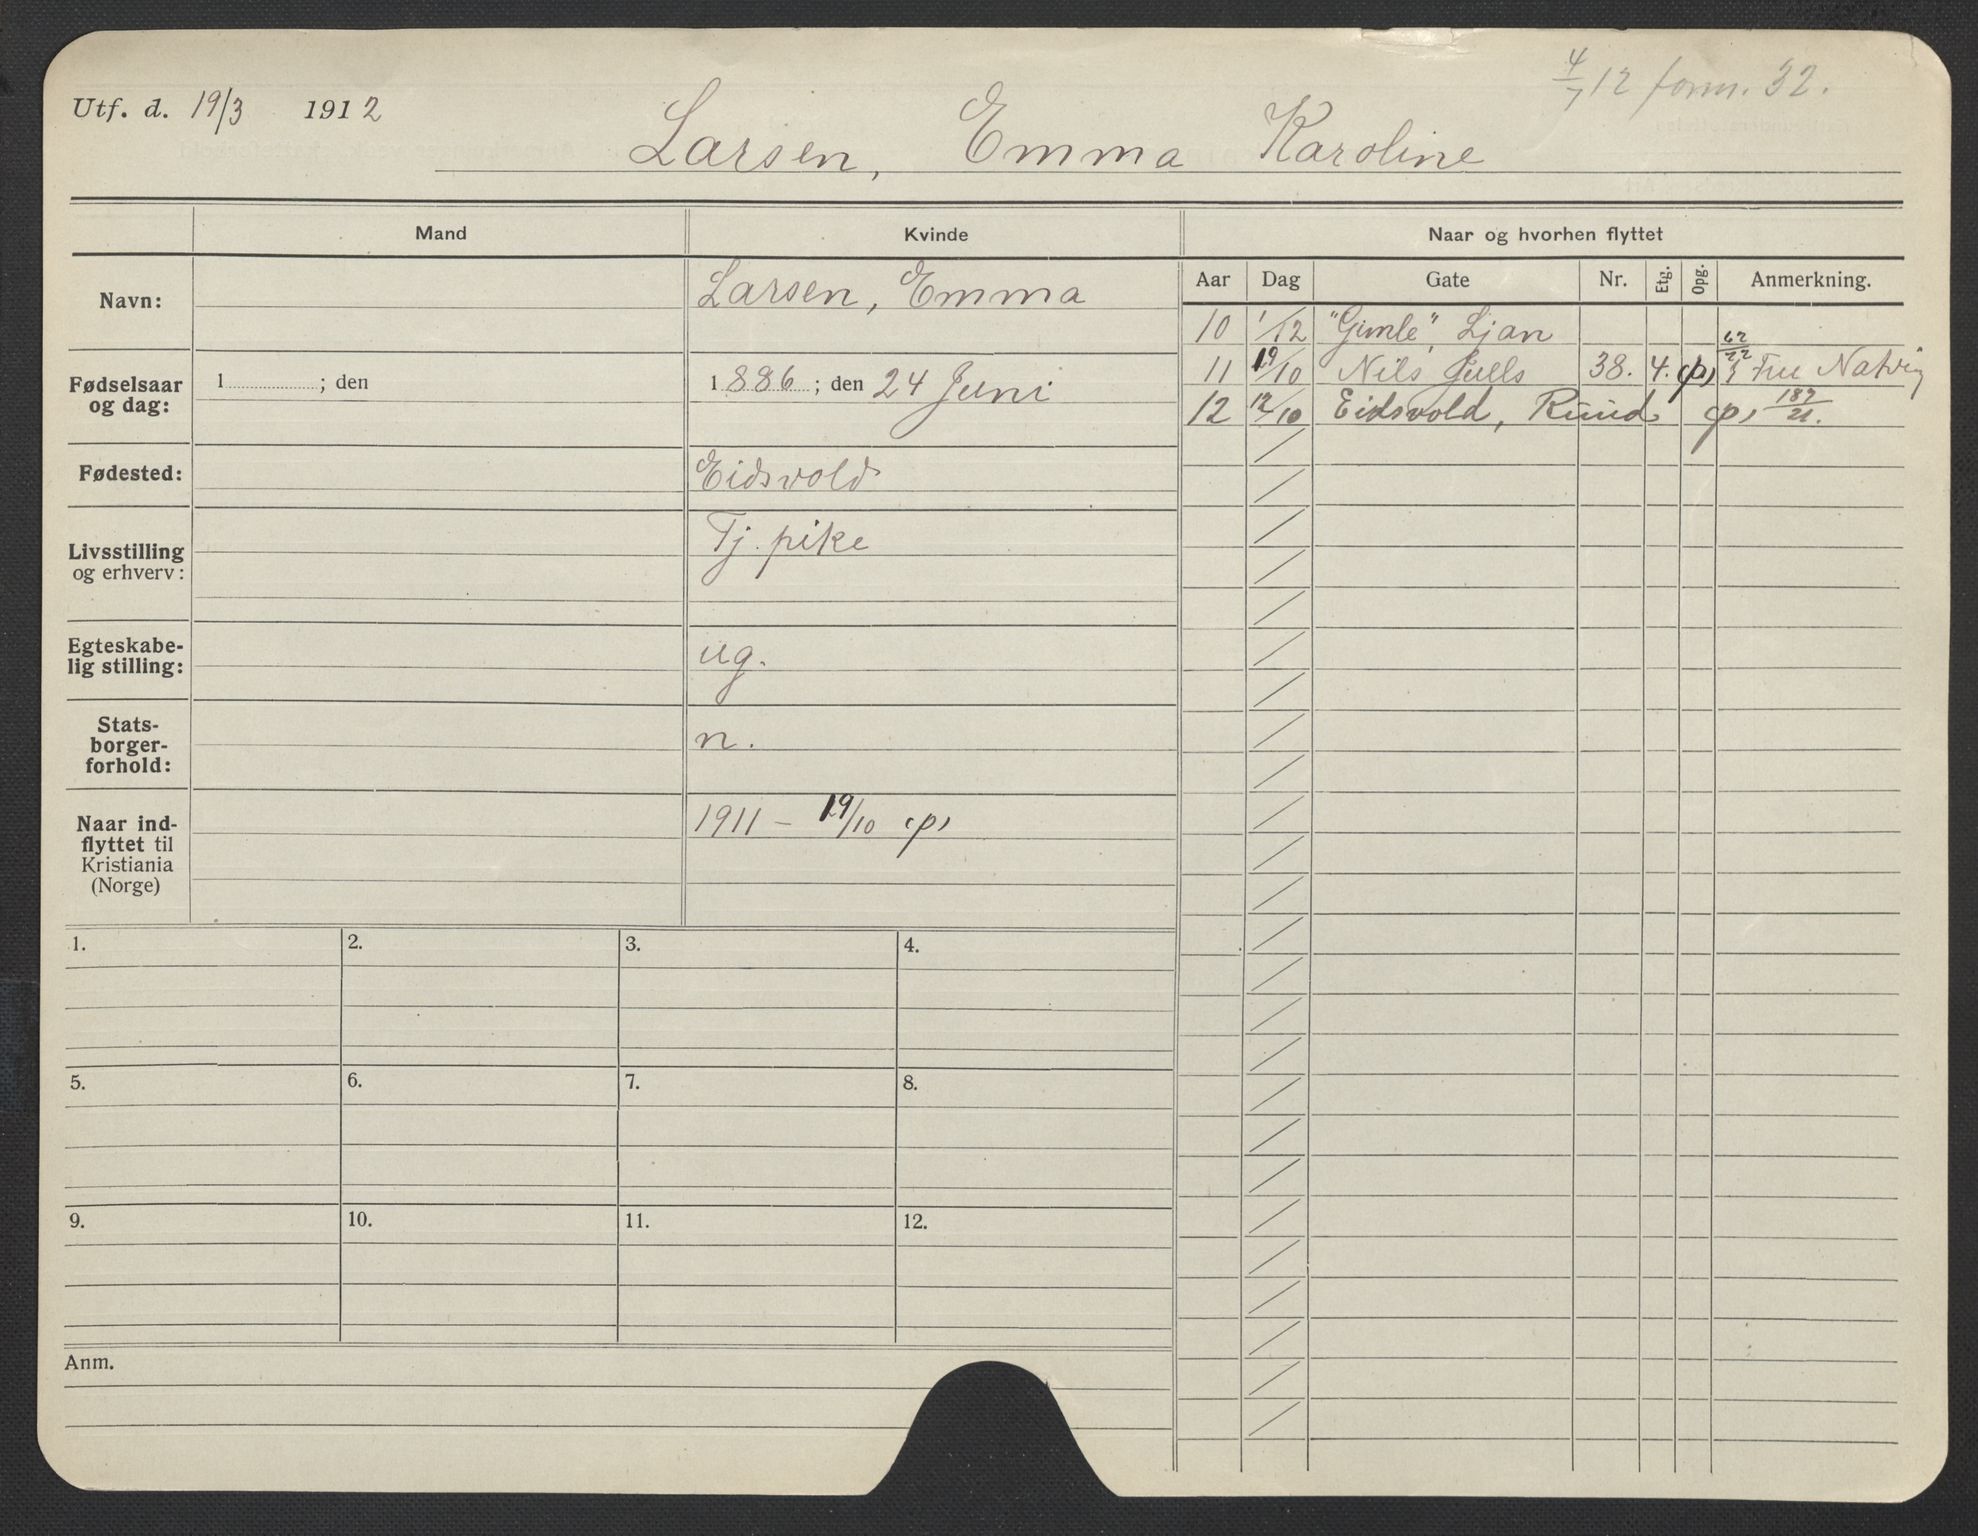 4/7 12 form. 32.
Utf. d. 19/3 1912
Larsen, Emma Karoline
Mand
Kvinde
Naar og hvorhen flyttet
Navn:
Larsen, Emma
Aar Dag Gate Nr. Etg. Opg. Anmerkning.
10 1/12 "Gimle", Ljan
11 19/10 Nils Juels 38. 4. (p) Fru Natvig
12 12/10 Eidsvold, Ruud (p) 187/21.
Fødselsaar og dag:
1 ; den
1886 ; den 24 Juni
Fødested:
Eidsvold
Livsstilling og erhverv:
Tj. pike
Egteskabe-
lig stilling:
ug.
Stats-
borger-
forhold:
n.
Naar ind-
flyttet til
Kristiania
(Norge)
1911 – 19/10 (p)
1. 2. 3. 4.
5. 6. 7. 8.
9. 10. 11. 12.
Anm.